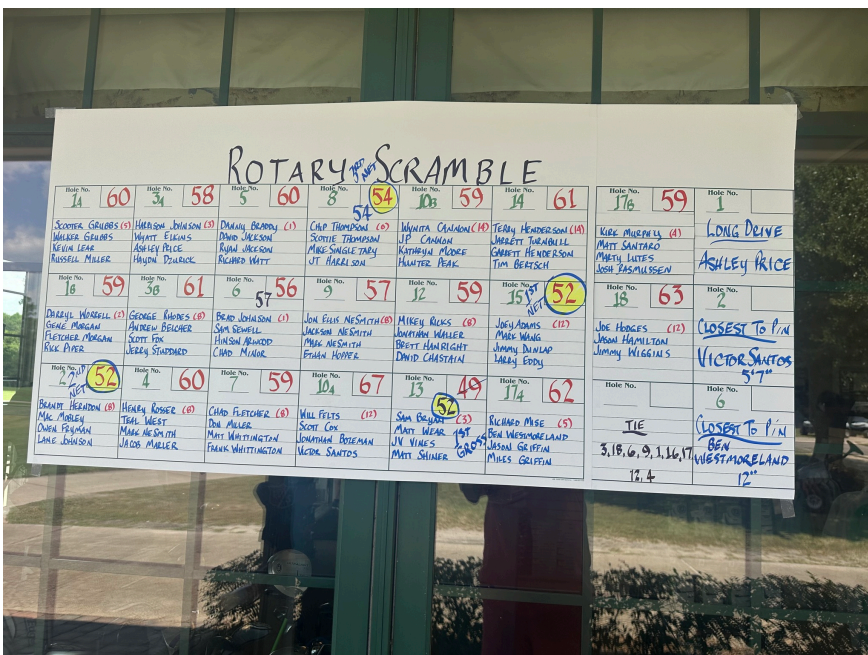 ROTARY SCRAMBLE
3RD NET
Hole No. 1A 60
SCOOTER GRUBBS (5)
WALKER GRUBBS
KEVIN LEAR
RUSSELL MILLER
Hole No. 3A 58
HARRISON JOHNSON (3)
WYATT ELKINS
ASHLEY PRICE
HAYDN DZURICK
Hole No. 5 60
DANNY BRADDY (1)
DAVID JACKSON
RYAN JACKSON
RICHARD WATT
Hole No. 8 54
54
CHIP THOMPSON (6)
SCOTTIE THOMPSON
MIKE SINGLETARY
JT HARRISON
Hole No. 10B 59
WYNITA CANNON (14)
JP CANNON
KATHRYN MOORE
HUNTER PEAK
Hole No. 14 61
TERRY HENDERSON (14)
JARRETT TURNBULL
GARRETT HENDERSON
TIM BERTSCH
Hole No. 17B 59
KIRK MURPHY (4)
MATT SANTARO
MARTY LUTES
JOSH RASMUSSEN
Hole No. 1
LONG DRIVE
ASHLEY PRICE
Hole No. 1B 59
DARRYL WORRELL (2)
GENE MORGAN
FLETCHER MORGAN
RICK PIPER
Hole No. 3B 61
GEORGE RHODES (8)
ANDREW BELCHER
SCOTT FOX
JERRY STUDDARD
Hole No. 6 56
57
BRAD JOHNSON (1)
SAM SEWELL
HINSON
CHAD MINOR
Hole No. 9 57
JON ELLIS NESMITH (8)
JACKSON NESMITH
MARK NESMITH
ETHAN HOPPER
Hole No. 12 59
MIKEY RICKS (8)
JONATHAN WALLER
BRETT HANRIGHT
DAVID CHASTAIN
Hole No. 15 52
1ST NET
JOEY ADAMS (12)
MARK WANG
JIMMY DUNLAP
LARRY EDDY
Hole No. 18 63
JOE HODGES (12)
JASON HAMILTON
JIMMY WIGGINS
Hole No. 2
CLOSEST TO PIN
VICTOR SANTOS
5'7"
Hole No. 2 52
2ND NET
BRANDT HERNDON (8)
MAC MOBLEY
OWEN FRYMAN
LANE JOHNSON
Hole No. 4 60
HENRY ROSSER (8)
TEAL WEST
MARK NESMITH
JACOB MARLER
Hole No. 7 59
CHAD FLETCHER (8)
DON MILLER
MATT WHITTINGTON
FRANK WHITTINGTON
Hole No. 10A 67
WILL FELTS (12)
SCOTT COX
JONATHAN BOZEMAN
VICTOR SANTOS
Hole No. 13 49
52
SAM BRYAN (3)
MATT WEAR
JV VINES
MATT SHINER
1ST GROSS
Hole No. 17A 62
RICHARD MISE (5)
BEN WESTMORELAND
JASON GRIFFIN
MILES GRIFFIN
Hole No.
TIE
3,18,6,9,1,16,17
12,4
Hole No. 6
CLOSEST TO PIN
BEN
WESTMORELAND
12"